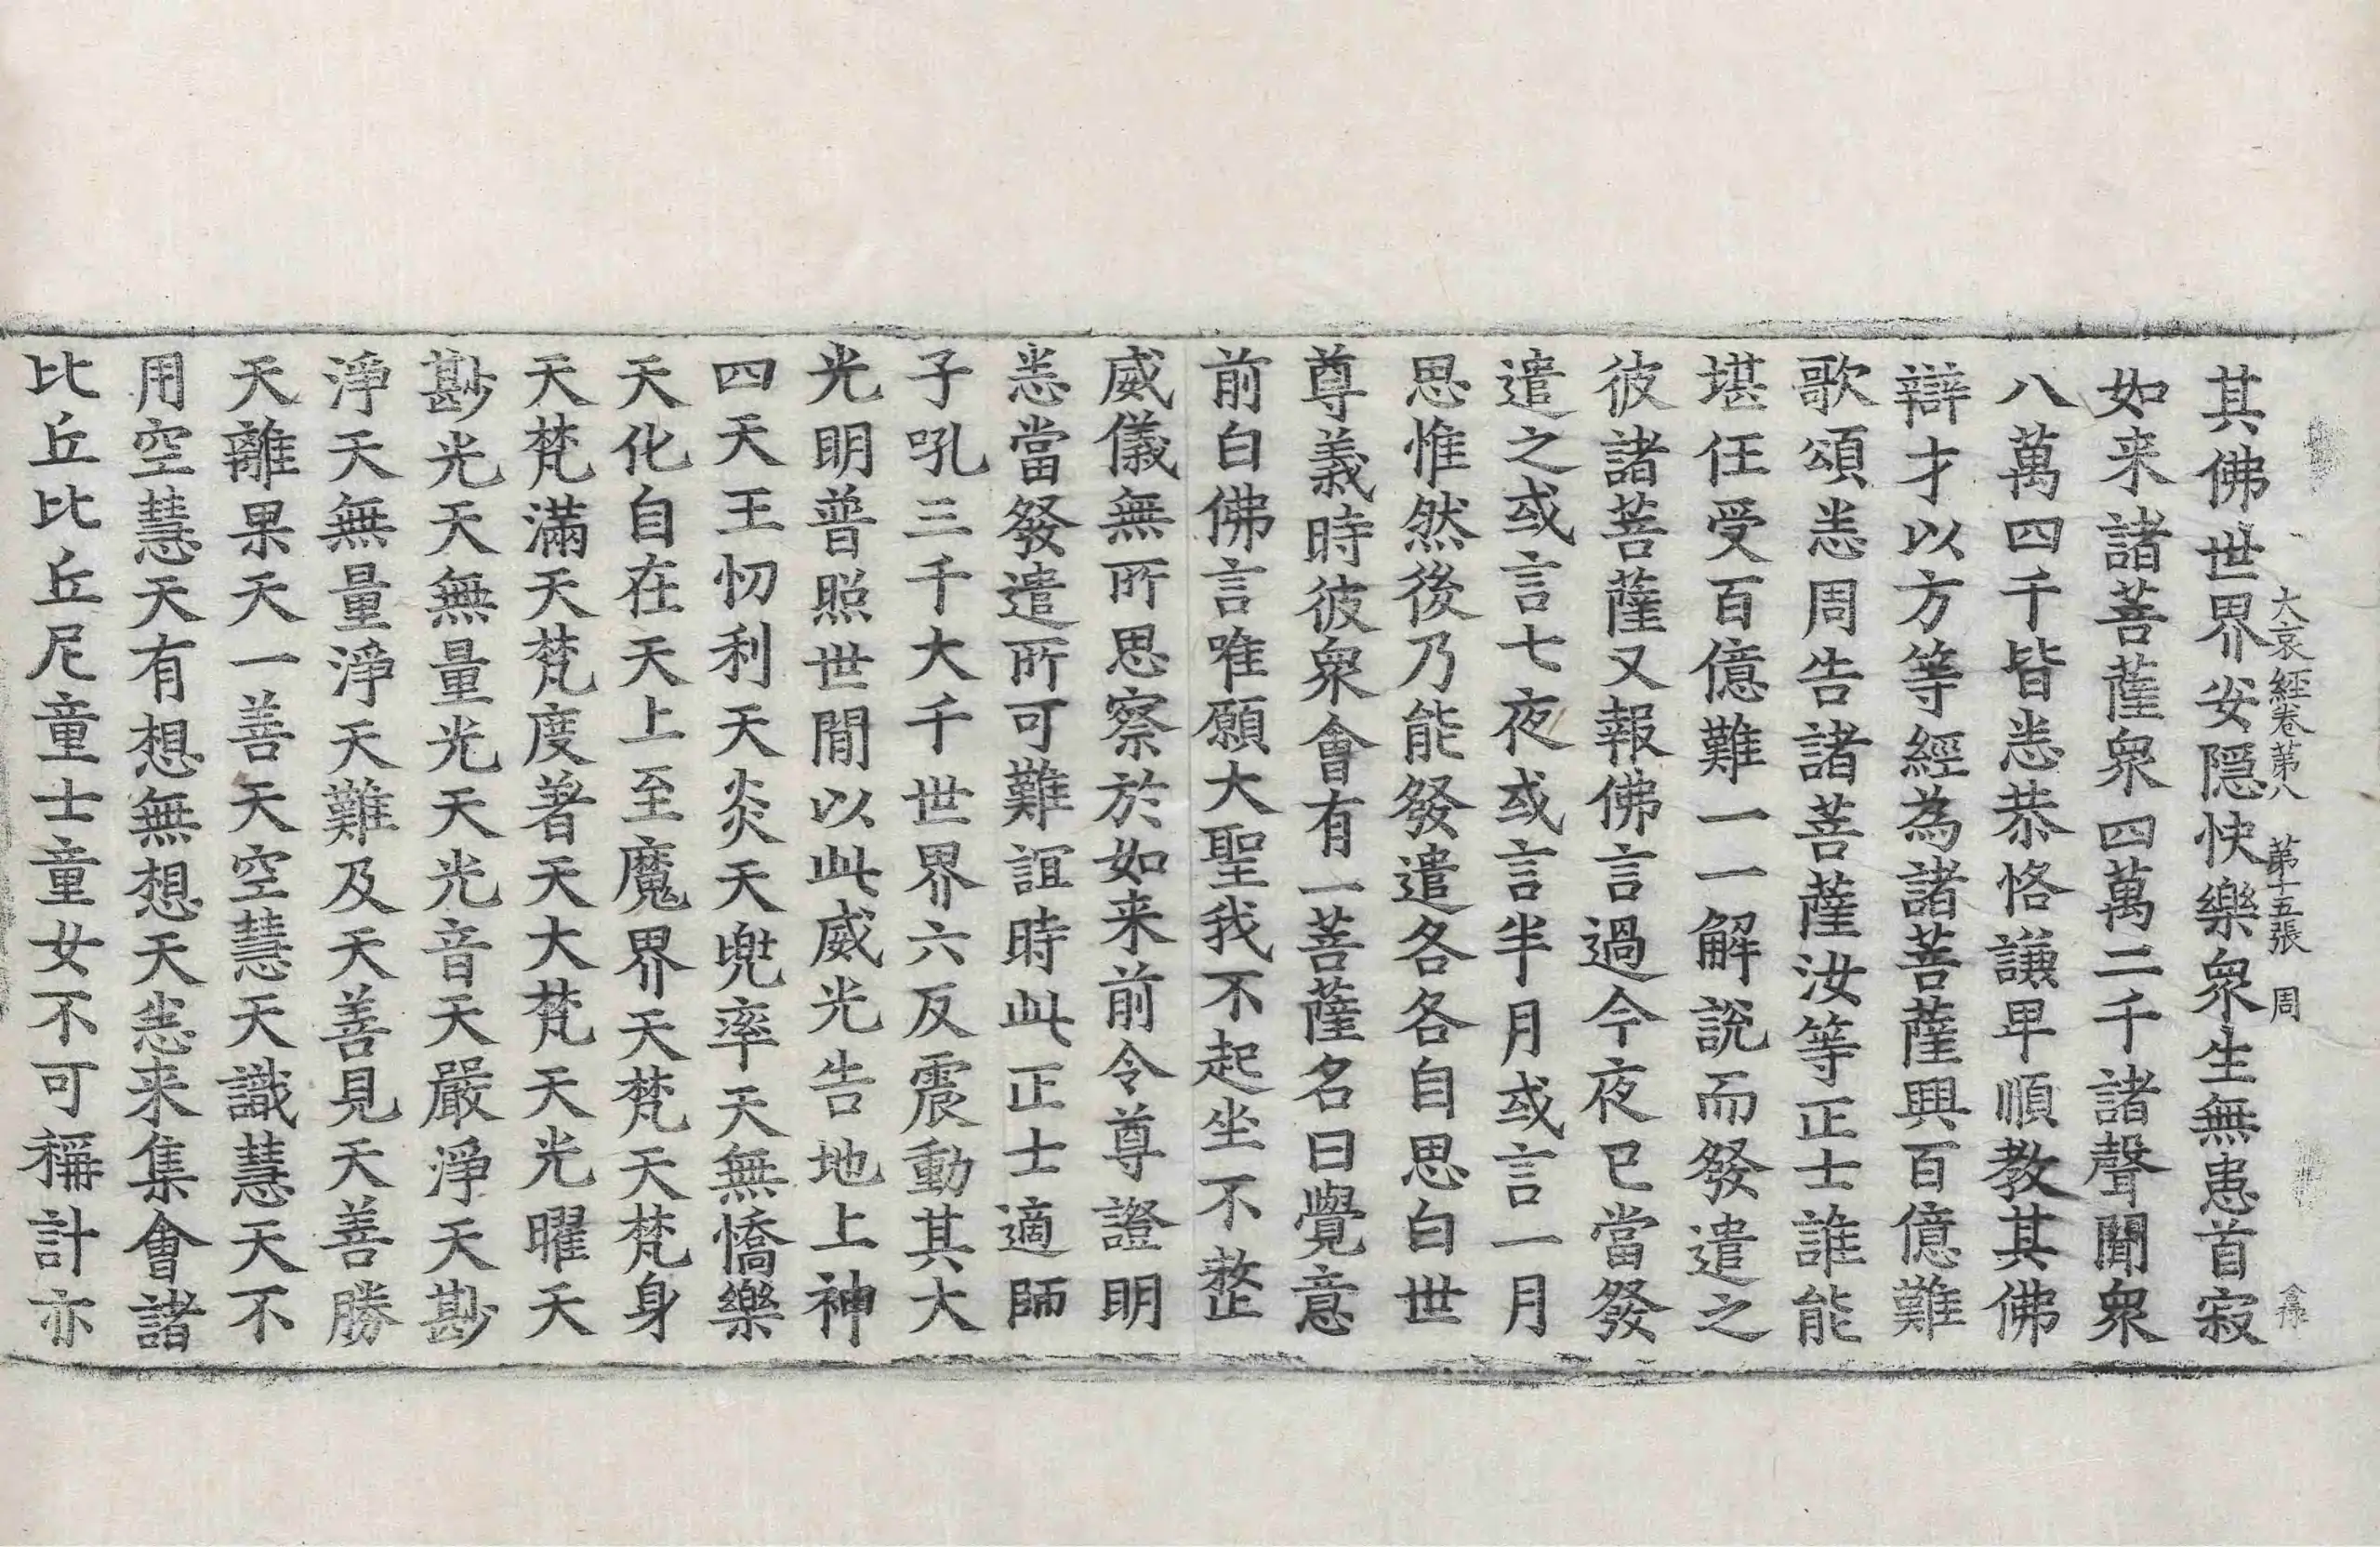 大哀經卷第八 第十五張 周
其佛世界安隱快樂衆生無恚首寂
如来諸菩薩衆四萬二千諸聲聞衆
八萬四千皆悉恭恪謙卑順教其佛
辯才以方等經為諸菩薩興百億難
歌頌悉周告諸菩薩汝等正士誰能
堪任受百億難一一解說而發遣之
彼諸菩薩又報佛言過今夜已當發
遣之或言七夜或言半月或言一月
思惟然後乃能發遣各各自思白世
尊義時彼衆會有一菩薩名曰覺意
前白佛言唯願大聖我不起坐不整
威儀無所思察於如来前令尊證明
悉當發遣所可難誼時此正士適師
子吼三千大千世界六反震動其大
光明普照世間以此威光告地上神
四天王忉利天炎天兜率天無憍樂
天化自在天上至魔界天梵天梵身
天梵滿天梵度著天大梵天光曜天
尠光天無量光天光音天嚴淨天尠
淨天無量淨天難及天善見天善勝
天離果天一善天空慧天識慧天不
用空慧天有想無想天悉来集會諸
比丘比丘尼童士童女不可稱計亦